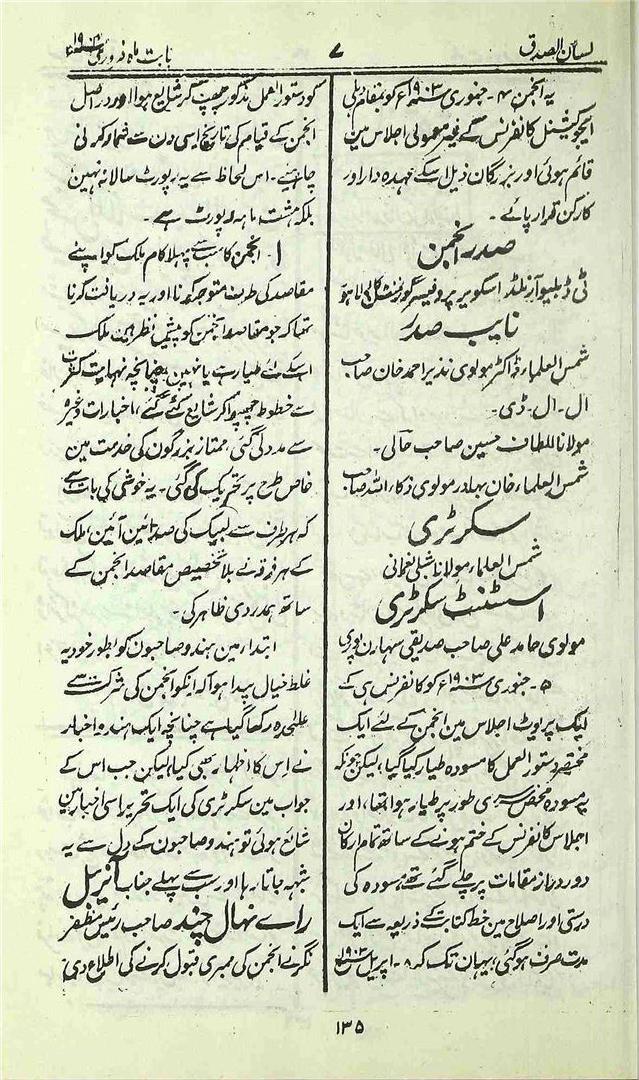 لسان الصدق
۷
بابت ماہ فروری ۱۹۰۴ء
یہ انجمن ۴۔ جنوری ۱۹۰۳ء کو بمقام دہلی
ایجوکیشنل کانفرنس کے غیر معمولی اجلاس مین
قائم ہوئی اور بزرگان ذیل اسکے عہدہ دار اور
کارکن قرار پائے۔
صدر انجمن
ٹی ڈبلیو آرنلڈ اسکویر پروفیسر گورنمنٹ کالج لاہور
نایب صدر
شمس العلماء ڈاکٹر مولوی نذیر احمد خان صاحب
ال۔ ال۔ ڈی۔
مولانا الطاف حسین صاحب حالی۔
شمس العلماء خان بہادر مولوی ذکاء اللہ صاحب
سکرٹری
شمس العلماء مولانا شبلی نعمانی
اسسٹنٹ سکرٹری
مولوی حامد علی صاحب صدیقی سہارن پوری
۵۔ جنوری ۱۹۰۳ء کو کانفرنس ہی کے
ایک پریوٹ اجلاس مین انجمن کے لئے ایک
مختصر دستور العمل کا مسودہ طیار کیا گیا، لیکن چونکہ
یہ مسودہ محض سرسری طور پر طیار ہوا تھا، اور
اجلاس کانفرنس کے ختم ہونے کے ساتھ تمام ارکان
دور دراز مقامات پر چلے گئے تھے، مسودہ کی
درستی اور اصلاح مین خط کتابت کے ذریعہ سے ایک
مدت صرف ہو گئی، یہان تک کہ ۸۔ اپریل ۱۹۰۳ء
کو دستور العمل مذکور چھپ کر شایع ہوا اور دراصل
انجمن کے قیام کی تاریخ اسی دن سے شمار کرنی
چاہیے۔ اس لحاظ سے یہ رپورٹ سالانہ نہین
بلکہ ہشت ماہہ رپورٹ ہے۔
۱۔ انجمن کا سب سے پہلا کام ملک کو اپنے
مقاصد کی طرف متوجہ کرنا اور یہ دریافت کرنا
تھا کہ جو مقاصد انجمن کو پیش نظر ہین ملک
اسکے لئے طیار ہے یا نہین، چنانچہ نہایت کثرت
سے خطوط چھپوا کر شایع کئے گئے، اخبارات وغیرہ
سے مدد لی گئی، ممتاز بزرگون کی خدمت مین
خاص طرح پر تحریک کی گئی۔ یہ خوشی کی بات ہے
کہ ہر طرف سے لبیک کی صدائین آئین، ملک
کے ہر فرقہ نے بلا تخصیص مقاصد انجمن کے
ساتھ ہمدردی ظاہر کی۔
ابتدا مین ہندو صاحبون کو بطور خود یہ
غلط خیال پیدا ہوا کہ انکو انجمن کی شرکت سے
علٰحدہ رکھا گیا ہے چنانچہ ایک ہندو اخبار
نے اس کا اظہار بھی کیا لیکن جب اس کے
جواب مین سکرٹری کی ایک تحریر اسی اخبار مین
شائع ہوئی تو ہندو صاحبون کے دل سے یہ
شبہہ جاتا رہا اور سب سے پہلے جناب آنریبل
رائے نہال چند صاحب رئیس مظفر
نگر نے انجمن کی ممبری قبول کرنے کی اطلاع دی
۱۳۵